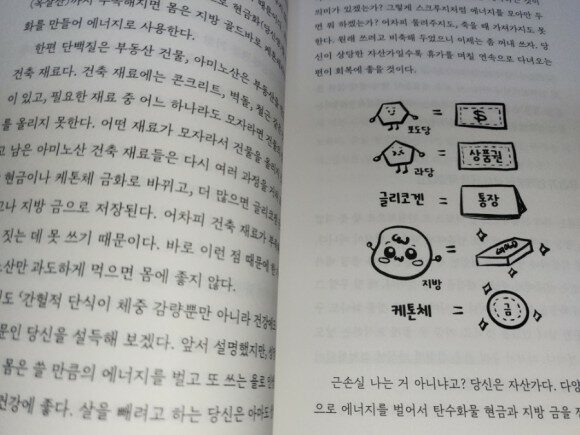 화를 만들어 에너지로 사용한다.
한편 단백질은 부동산 건물, 아미노산은 부동산을
건축 재료다. 건축 재료에는 콘크리트, 벽돌, 철근
이 있고, 필요한 재료 중 어느 하나라도 모자라면 건물을
를 올리지 못한다. 어떤 재료가 모자라서 건물을
고 남은 아미노산 건축 재료들은 다시 여러 과정을
현금이나 케톤체 금화로 바뀌고, 더 많으면
나 지방 금으로 저장된다. 어차피 건축 재료가
짓는 데 못 쓰기 때문이다. 바로 이런 점 때문에
노산만 과도하게 먹으면 몸에 좋지 않다.
도 '간헐적 단식이 체중 감량뿐만 아니라
문인 당신을 설득해 보겠다. 앞서 설명했지만,
몸은 쓸 만큼의 에너지를 벌고 또 쓰는 올로
건강에 좋다. 살을 빼려고 하는 당신은
의미가 있겠는가? 그렇게 스크루지처럼 에너지를 모아만 두
면 뭐 하겠는가? 어차피 물려주지도, 죽을 때 가져가지도 못
한다. 원래 쓰려고 비축해 두었으니 이제는 좀 꺼내 쓰자. 당
신이 상당한 자산가일수록 휴가를 며칠 연속으로 다녀오는
편이 회복에 좋을 것이다.
포도당 = $
과당 = 상품권
글리코겐 = 통장
지방 =
케톤체 = 금
근손실 나는 거 아니냐고? 당신은 자산가다. 다양
으로 에너지를 벌어서 탄수화물 현금과 지방 금을